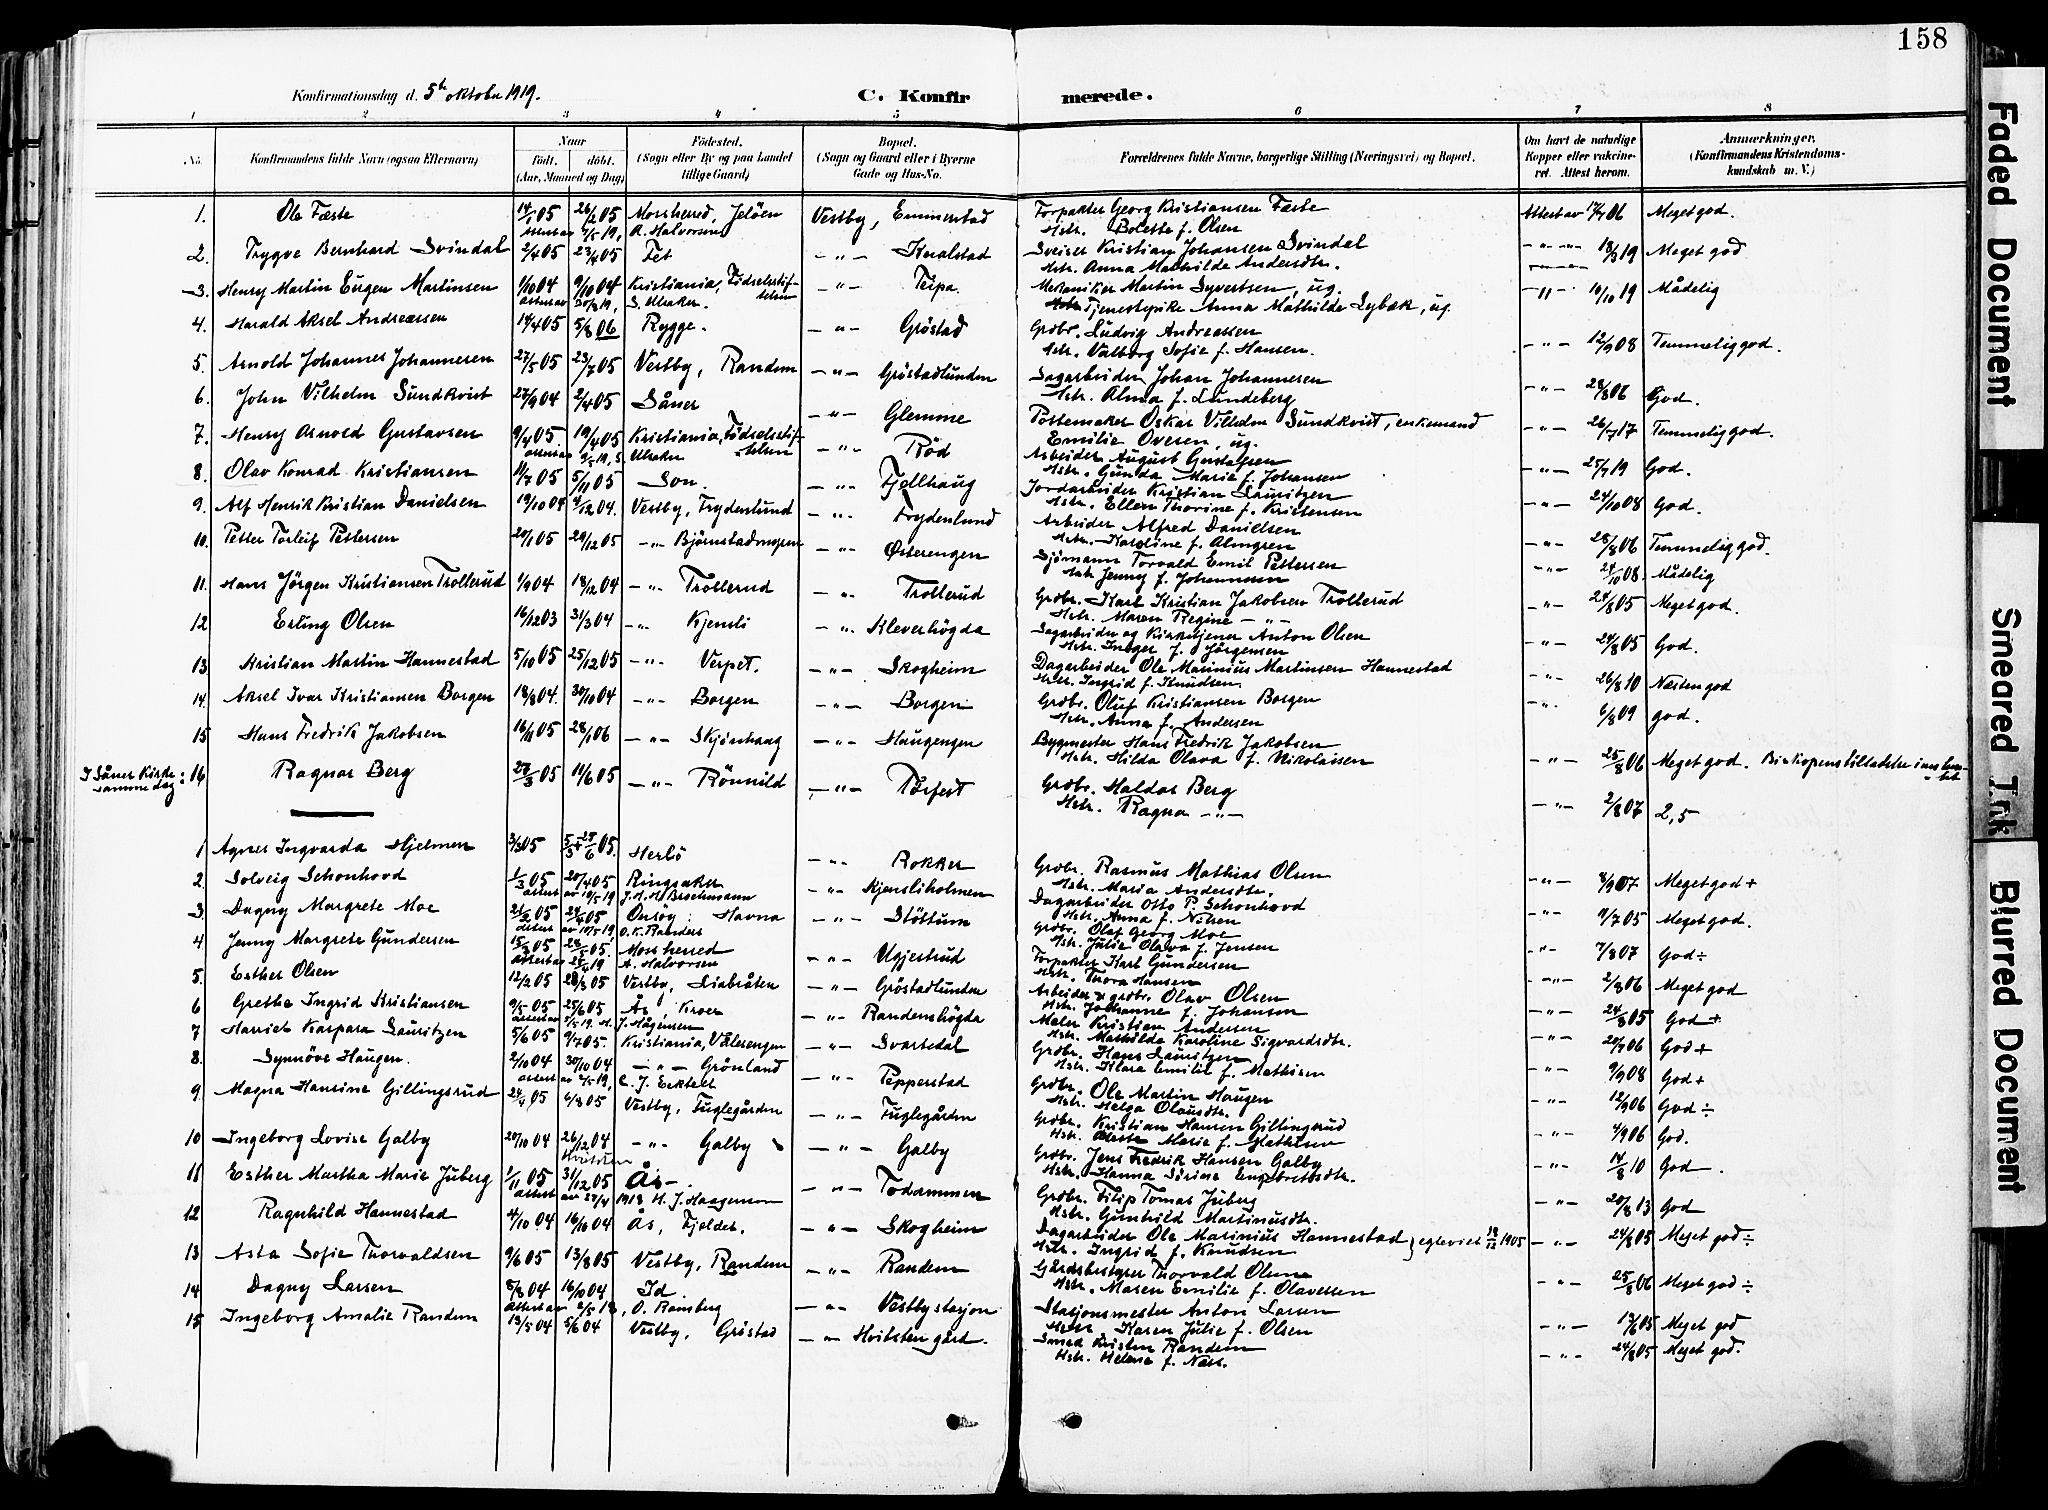 158
Konfirmationsdag d. 5te oktober 1919.
C. Konfirmerede.
1 2 3 4 5 6 7 8
No. Konfirmandens fulde Navn (ogsaa Efternavn) Naar født. døbt. (Aar, Maaned og Dag) Fødested. (Sogn eller By og paa Landet tillige Gaard) Bopæl. (Sogn og Gaard eller i Byerne Gade og Hus-No. Forældrenes fulde Navne, borgerlige Stilling (Næringsvei) og Bopæl. Om havt de naturlige Kopper eller vakcineret. Attest herom. Anmærkninger. (Konfirmandens Kristendomskundskab m. V.)
1. Ole Fæste 14/1 05 26/2 05 Mossherred, Jeløen Vestby, Emmerstad Forpakter Georg Kristiansen Fæste Attest av 17/7 06 Meget god.
attest av 2/5 19, R. Halvorsen Hstr. Bolette f. Olsen
2. Trygve Bernhard Svindal 2/4 05 23/4 05 Fet -"- Knalstad Sveiser Kristian Johansen Svindal -"- 18/3 19 Meget god
Hstr. Anna Mathilde Andersdtr.
3. Henry Martin Eugen Martinsen 1/10 04 9/10 04 Kristiania, Fødselsstiftelsen -"- Teipa. Mekaniker Martin Syvertsen, ug. -"- 10/10 19 Mådelig
Tjenestepike Anna Mathilde Lybæk, ug.
4. Harald Aksel Andreassen 14/4 05 5/8 06 Rygge. -"- Grøstad Grdbr. Ludvig Andreassen -"- 12/9 08 Temmelig god.
Hstr. Valborg Sofie f. Hansen.
5. Arnold Johannes Johannesen 27/5 05 23/7 05 Vestby, Randem -"- Grøstadlunden Sagarbeider Johan Johannesen -"- 28/8 06 God.
Hstr. Alma f. Lundeberg
6. John Vilhelm Sundkvist 27/9 04 2/4 05 Såner -"- Glemme Pottemaker Oskar Vilhelm Sundkvist, enkemand -"- 26/7 17 Temmelig god.
Emilie Ovesen, ug.
7. Henry Arnold Gustavsen 9/4 05. 19/4 05 Kristiania, Fødselsstiftelsen -"- Rød Arbeider August Gustafsen -"- 25/7 19 God.
Hstr. Gunda Marie f. Johansen
8. Olav Konrad Kristiansen 11/7 05 5/11 05 Son. -"- Fjellhaug Jordarbeider Kristian Lauritzen -"- 24/10 08 God.
Hstr. Ellen Thorine f. Kristensen
9. Alf Henrik Kristian Danielsen 19/10 04 4/12 04. Vestby, Frydenlund -"- Frydenlund Arbeider Alfred Danielsen -"- 28/8 06 Temmelig god.
Hstr. Karoline f. Almgren
10. Petter Torleif Pettersen 20/1 05 29/12 05 -"- Bjørnstadmyren -"- Østerengen Sjømann Torvald Emil Pettersen -"- 24/10 08. Mådelig
Hstr. Jenny f. Johannesen
11. Hans Jørgen Kristiansen Trollerud 1/9 04 18/12 04 -"- Trollerud -"- Trollerud Grdbr. Karl Kristian Jakobsen Trollerud -"- 24/8 05 Meget god.
Hstr. Maren Regine -"-
12 Erling Olsen 16/12 03 31/3 04 -"- Kjensli -"- Kleverhøgda Sagarbeider og Kirketjener Anton Olsen -"- 24/8 05 God.
Hstr. Inger f. Jørgensen
13 Kristian Martin Hannestad 5/10 05 25/12 05 -"- Verpet. -"- Skogheim Dagarbeider Ole Marinius Martinsen Hannestad -"- 26/8 10 Næsten god
Hstr. Ingrid f. Knudsen.
14. Aksel Ivar Kristiansen Borgen 18/8 04. 30/10 04 -"- Borgen -"- Borgen Grdbr. Oluf Kristiansen Borgen -"- 6/8 09 god.
Hstr. Anna f. Andersen
15 Hans Fredrik Jakobsen 16/11 05 28/1 06 -"- Skjønhaug -"- Haugengen Bygmester Hans Fredrik Jakobsen -"- 25/8 06 Meget god. Biskopens tillatelse
Hstr. Hilda Olava f. Nikolaisen
I Såner Kirke samme dag: 16 Ragnar Berg 27/3 05 11/6 05 -"- Rønnild -"- Grdbr. Haldor Berg -"- 2/8 07 2,5
Hstr. Ragna -"-
1 Agnes Ingvarda Hjelmen 3/3 05 Herlø -"- Rokker Grdbr. Rasmus Mathias Olsen -"- 8/9 07 Meget god +
Hstr. Maria Andersdtr.
2. Solveig Schonhovd 1/3 05 20/4 05 Ringsaker -"- Kjensliholmen Dagarbeider Otto P. Schonhovd -"- 9/7 05 Meget god.
attest av 19/5 19 J. H. H. Brochmann Hstr. Anna f. Nilsen
3. Dagny Margrete Moe 21/2 05 24/4 05 Onsøy: Havna -"- Støttum Grdbr. Olaf Georg Moe -"- 7/8 07 God ÷
attest av 10/5 19 O. K. Randers Hstr. Julie Olava f. Jensen
4 Jenny Margrete Gundersen 15/3 05 28/5 05. Mossherred -"- Ugjestrud Forpakter Karl Gundersen -"- 2/8 06 Meget god
attest av A. Halvorsen Hstr. Thora Hansen
5. Esther Olsen 12/2 05 20/8 05 Vestby, Liabråten -"- Grøstadlunden Arbeider & grdbr. Olav Olsen -"- 24/8 05 God +
Hstr. Johanne f. Johansen
6 Grethe Ingrid Kristiansen 9/5 05 25/6 05 Ås, Kroer -"- Randemshøgda Maler Kristian Andersen -"- 20/7 06 God +
attest av 2/5 19. H. J. Hågensen Hstr. Mathilde Karoline Sigvardsdtr.
7 Harriet Kaspara Lauritzen 5/6 05 9/7 05. Kristiania, Vålerengen -"- Svartedal Grdbr. Hans Lauritzen -"- 9/9 08 God +
Hstr. Klara Emilie f. Mathisen
8. Synnøve Haugen. 2/10 04 30/10 04 -"- Grønland -"- Pepperstad Grdbr. Ole Martin Haugen -"- 12/9 06 God ÷
attest av 2/5 19, C. J. Hstr. Helga Olausdtr.
9 Magna Hansine Gillingsrud 24/4 05 6/8 05 Vestby, Fuglegården -"- Fuglegården Grdbr. Kristian Hansen Gillingsrud -"- 4/9 06 God.
Hstr. Marie f. Mathisen
10 Ingeborg Lovise Galby 20/10 04 26/12 04 -"- Galby -"- Galby Grdbr. Jens Fredrik Hansen Galby -"- 14/8 10 God.
Hvitsten Hstr. Hanna Sirine Engebretsdtr.
11 Esther Martha Marie Juberg 1/11 05 31/12 05 Ås -"- Todammen Grdbr. Filip Tomas Juberg -"- 20/8 13 God
attest av 27/4 1918 H. J. Haagensen Hstr. Gunhild Martinusdtr.
12 Ragnhild Hannestad 4/10 04 16/10 04 Ås, Fjelder. -"- Skogheim Dagarbeider Ole Marinius Hannestad } egteviet 19/12 1905 -"- 24/8 05 Meget god ÷
Hstr. Ingrid f. Knudsen
13 Asta Sofie Thorvaldsen 9/6 05 13/8 05 Vestby, Randem -"- Randem Gårdsbestyrer Thorvald Olsen -"- 25/8 06 Meget god ÷
Hstr. Maren Emilie f. Olavesen
14 Dagny Larsen 8/8 04 16/10 04 Id. -"- Vestby stasjon Stasjonsmester Anton Larsen -"- 19/6 05 Meget god
attest av 2/5 18, O. Ramberg Hstr. Karen Julie f. Olsen
15 Ingeborg Amalie Randem 13/5 04 5/6 04 Vestby, Grøstad -"- Hvitsten gård. Smed Kristen Randem -"- 24/8 05 Meget god.
Hstr. Helene f. Næss.
Faded Document
Smeared Ink
Blurred Document